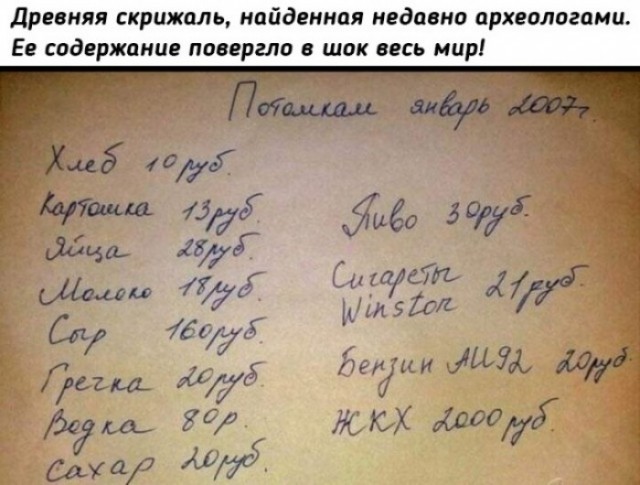 Древняя скрижаль, найденная недавно археологами.
Ее содержание повергло в шок весь мир!
Потомкам январь 2007г.
Хлеб 10 руб.
Картошка 13 руб.
Яйца 28 руб.
Молоко 18 руб.
Сыр 160 руб.
Гречка 20 руб.
Водка 80 р.
Сахар 20 руб.
Пиво 30 руб.
Сигареты
Winston 21 руб.
Бензин АИ92 20 руб.
ЖКХ 2000 руб.